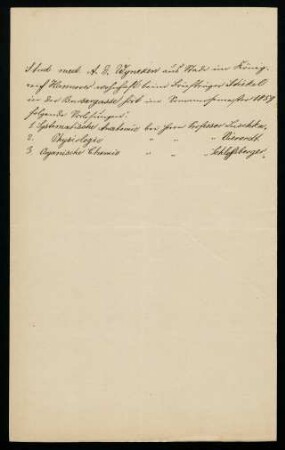 Stud. med. A. E. Wyneken aus Stade im König-
reich Hannover wohnhaft beim Briefträger
in der hört im Sommersemester 1857
folgende Vorlesungen:
1. Systematische Anatomie bei Herrn Professor Luschka,
2. Physiologie " " " Vierordt.
3. Organische Chemie " " " Schlossberger.